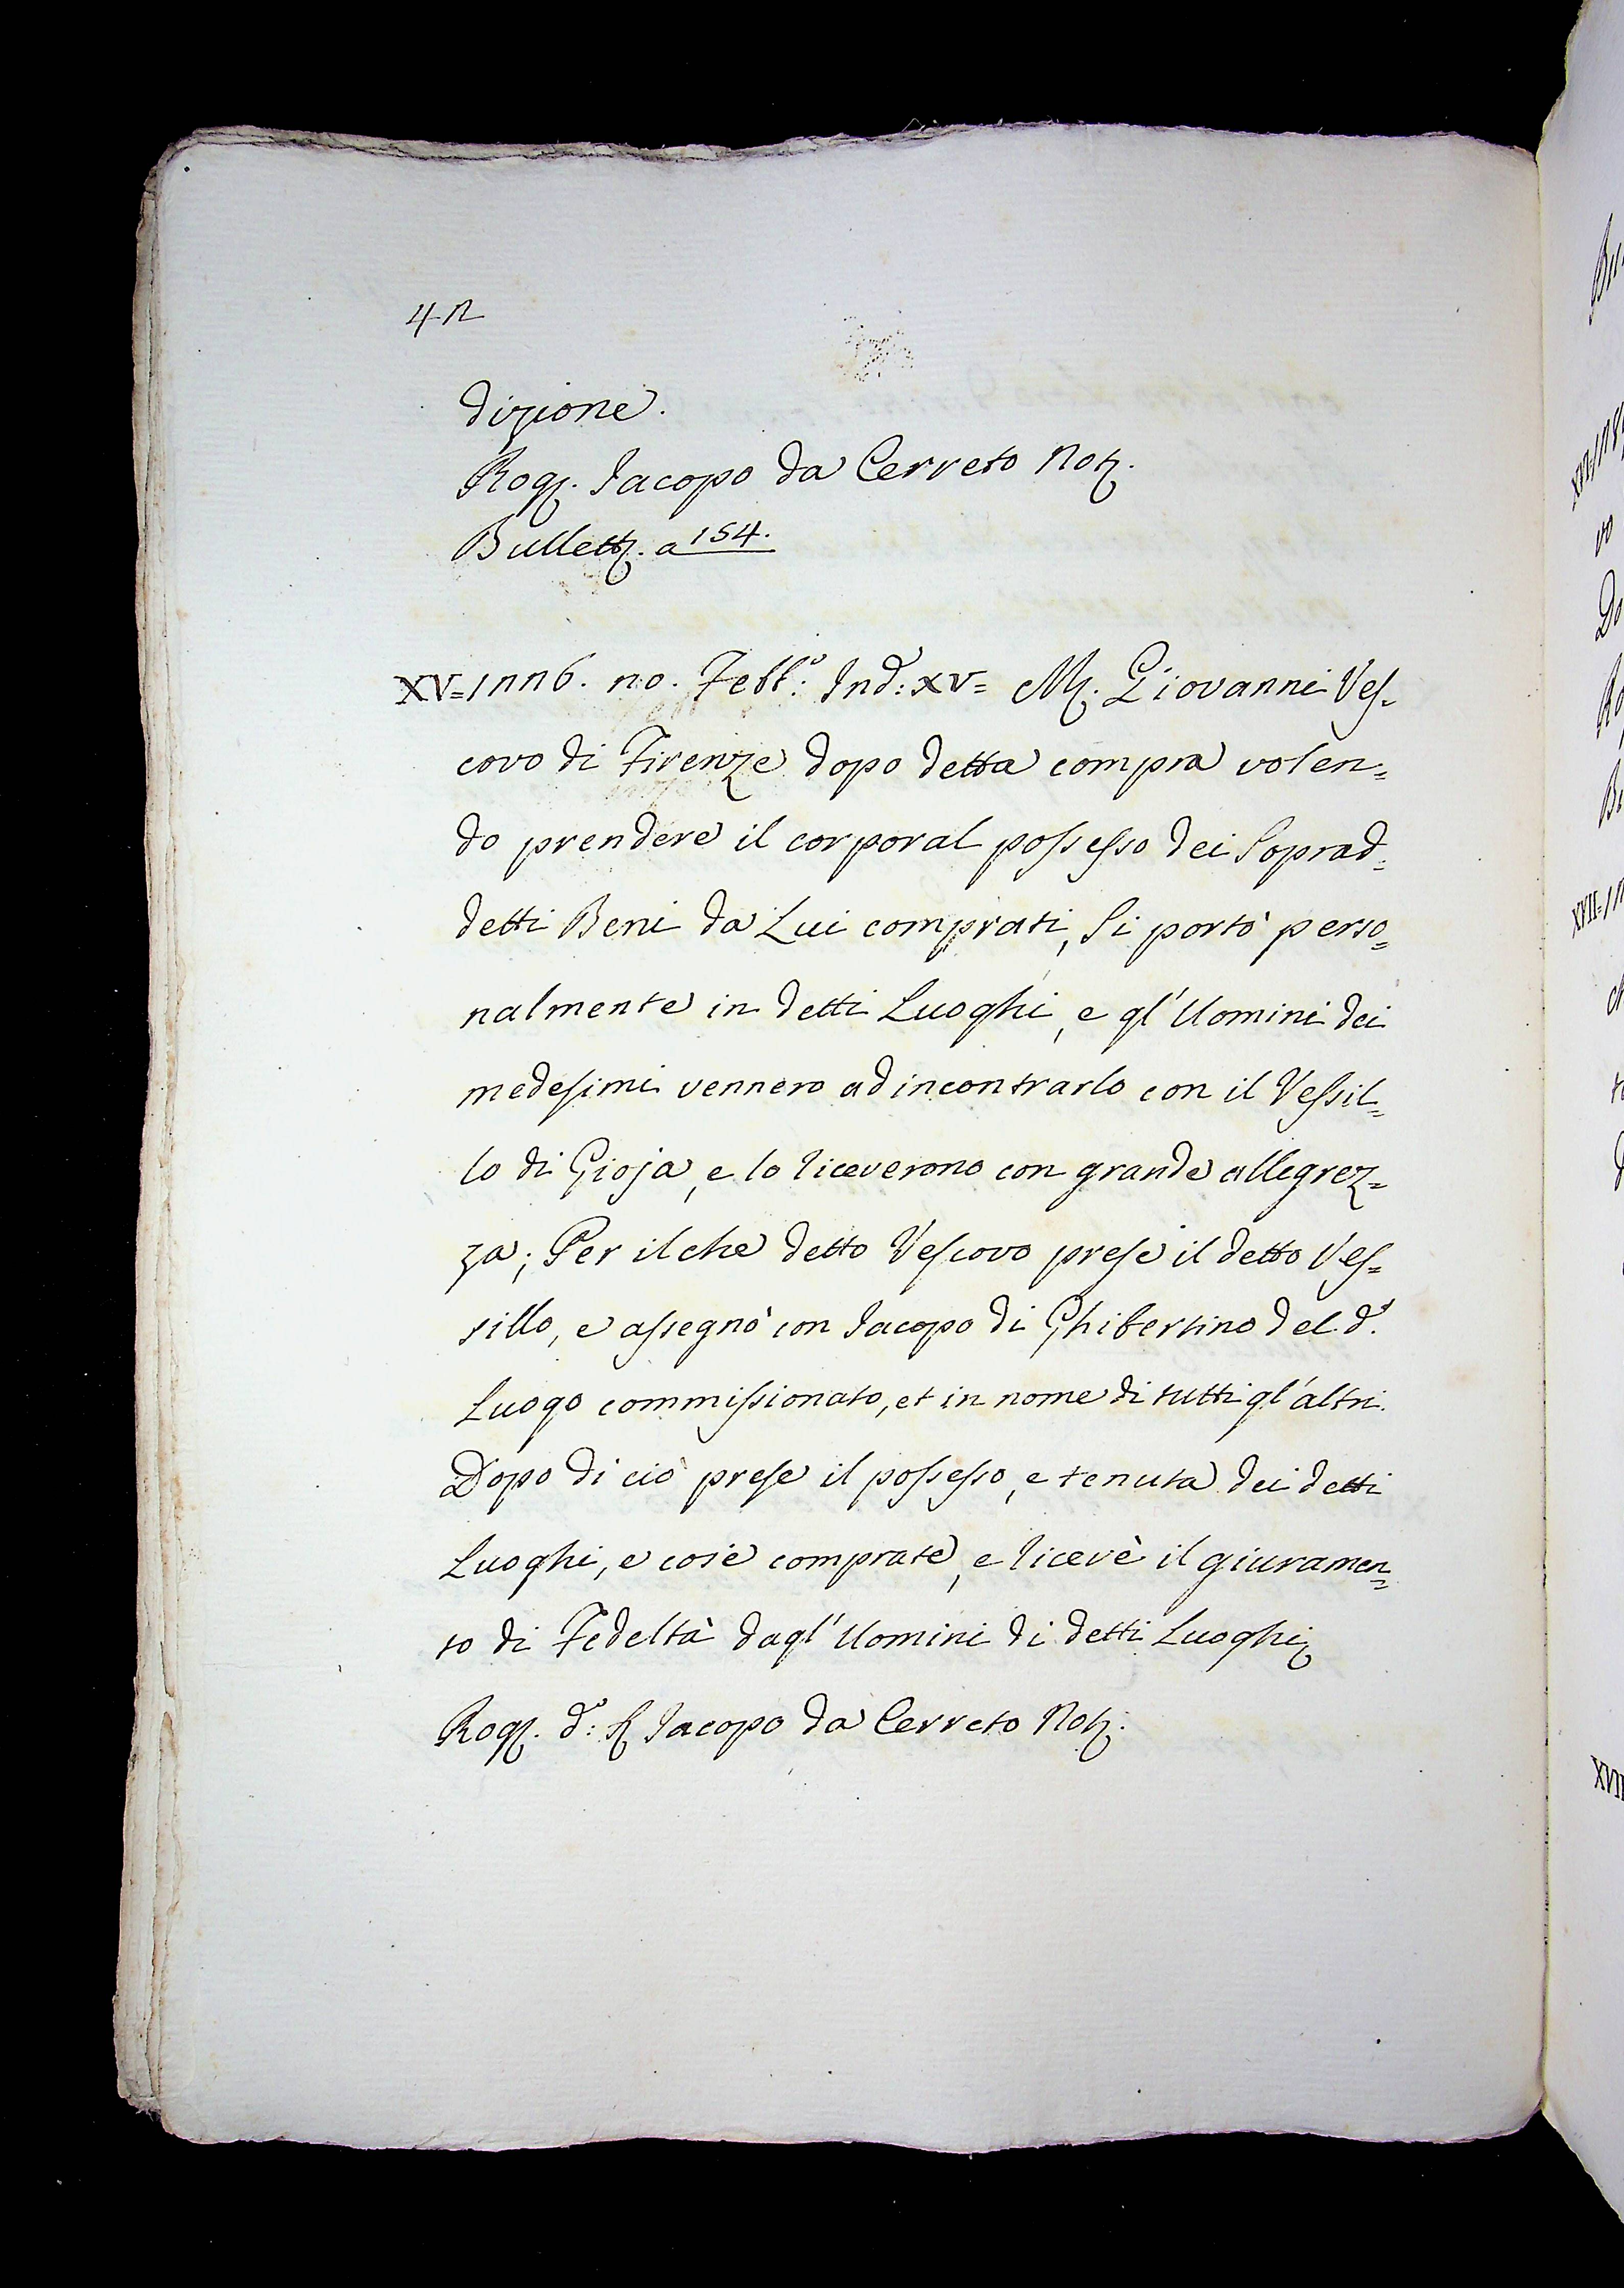 42
dizione.
Rog. Jacopo da Cerreto Not.
Bullett. a 154.
XV=1226. 20. Febb.º Ind: XV= M. Giovanni Ves=
covo di Firenze dopo detta compra volen=
do prendere il corporal possesso dei Soprad=
detti Beni da Lui comprati, Si portò perso=
nalmente in detti Luoghi, e gl'Uomini dei
medesimi vennero ad incontrarlo con il Vessil=
lo di Gioja, e lo riceverono con grande allegrez=
za; Per ilche detto Vescovo prese il detto Ves=
sillo, e assegnò con Jacopo di Ghibertino del d.º
Luogo commissionato, et in nome di tutti gl'altri.
Dopo di ciò prese il possesso, e tenuta dei detti
Luoghi, e cose comprate, e ricevè il giuramen=
to di Fedeltà dagl'Uomini di detti Luoghi
Rog. d.º: S. Jacopo da Cerreto Not.